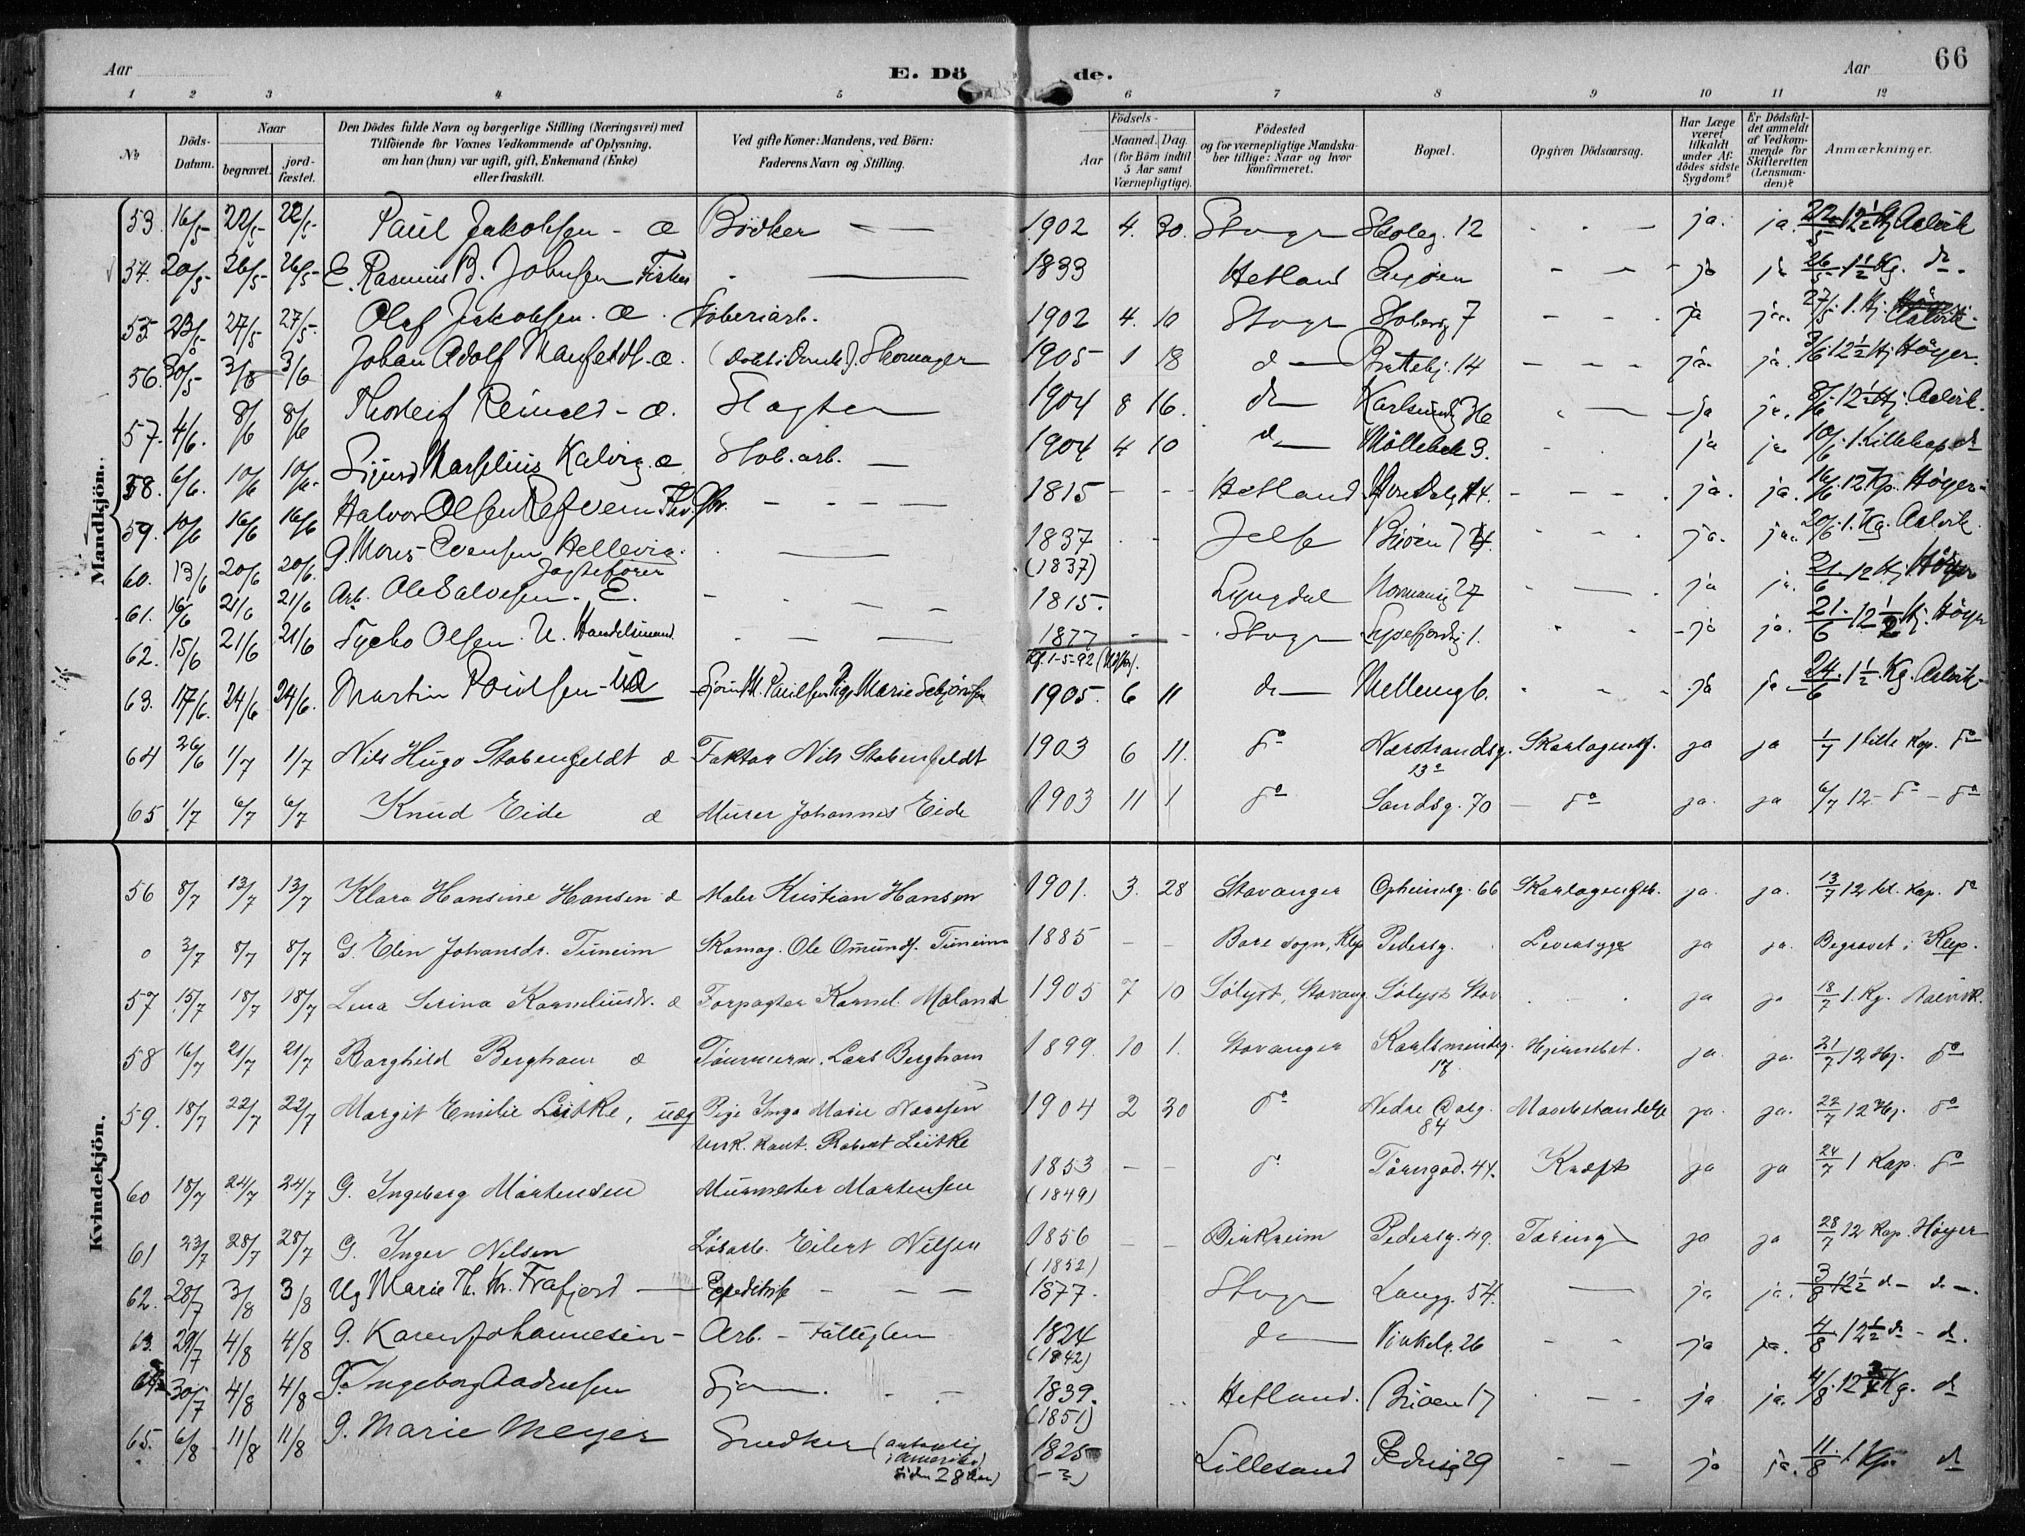 Aar E. Dö de. Aar 66
1 2 3 4 5 6 7 8 9 10 11 12
No Döds-Datum. Naar begravet. jordfæstet. Den Dödes fulde Navn og borgerlige Stilling (Næringsvei) med Tilföiende for Voxnes Vedkommende af Oplysning, om han (hun) var ugift, gift, Enkemand (Enke) eller fraskilt. Ved gifte Koner: Mandens, ved Börn: Faderens Navn og Stilling. Aar Födsels- Maaned. Dag. (for Börn indtil 5 Aar samt Værnepligtige). Födested og for værnepligtige Mandskaber tillige: Naar og hvor konfirmeret. Bopæl. Opgiven Dödsaarsag. Har Læge været tilkaldt under Afdödes sidste Sygdom? Er Dödsfaldet anmeldt af Vedkommende for Skifteretten (Lensmanden)? Anmærkninger.
Mandkjön.
53. 16/5 22/5 22/5 Paul Jakobsen - æ Bödker 1902 4. 30. Stvgr Skoleg. 12 ja. ja. 22/5 12 1/2 Kj Aalvik
54. 20/5 26/5 26/5 E. Rasmus B. Johnsen Fisker 1833 Hetland ja ja 26/5 1 1/2 Kg. do.
55 23/5 27/5 27/5 Olaf Jakobsen. æ. Støberiarb. 1902 4. 10 Stvgr 7 ja ja. 27/5 1. Kj. Aalvik
56. 30/5 3/6 3/6 Johan Adolf æ. Skomager 1905 1 18 do 14 ja. ja. 3/6 12 1/2 Kj Höyer
57. 4/6. 8/6 8/6 Thorleif Reinald - æ. Slagter 1904 8 16. do ja ja. 8/6 12 1/2 Kj. Aalvik.
58. 6/6. 10/6 10/6 Sigurd Marselius Kalvig. æ Stob. arb. 1904 4 10 do Möllebak 3. ja ja 10/6 1. Lillekap do
59. 10/6 16/6 16/6 Halvor Olsen 1815 Hetland ja. ja. 16/6 12 Kp. Höyer
60. 13/6 20/6 20/6. G. Mons Evensen Hellevig. Jagtefører 1837 (1837) Jelse ja. ja. 20/6 1. Kg. Aalvik.
61. 16/6 21/6 21/6 Arb. Ole Salvesen. E. 1815. Lyngdal 27 ja ja. 21/6 12 Kj Höyer
62. 15/6 21/6 21/6 Tycho Olsen. U. Handelsmand. 1877 Stvgr Lysefjordg 1. ja ja. 21/6 12 1/2 Kj. Höyer
63. 17/6. 24/6 24/6. Martin Poulsen uæ Marie 1905. 6 11 do 6. ja ja 24/6 1 1/2 Kg. Aalvik
64 26/6 1/7 1/7 Nils Hugo Stabenfeldt æ Faktor Nils Stabenfeldt 1903 6 11. do Nærstrandsg. 13a Skarlagensf. ja ja 1/7 1 lille Kap. do
65. 1/7 6/7 6/7 Knud Eide æ Murer Johannes Eide 1903 11 1 do Sandsg. 70 do ja. ja 6/7 12 - do - do
Kvindekjön.
56 8/7 13/7 13/7 Klara Hansine Hansen æ Maler Kristian Hansen 1901. 3. 28 Stavanger Opheimsg. 66 Skarlagensfeb. ja. ja. 13/7 12 lil. Kap. do
0 3/7 8/7 8/7 G. Elen Johansdr. Tuneim Skomag. Ole Omunds. Tuneim 1885 Bore sogn, Klep Pedersg. Leversyge ja ja. Begravet i Klep.
57 15/7 18/7 18/7 Lena Serina Korneliusdr. æ Forpagter Kornel. Maland 1905 7 10 Sølyst, Stavang. Sølyst Stav. ja ja 18/7 1. Kg. Aalvik.
58 16/7 21/7 21/7 Borghild Bergham æ Tømmerm. Lars Bergham 1899. 10 1. Stavanger Karlsmindeg. 17. Hjernebet. ja. ja. 21/7 12 Kj. do
59. 18/7 22/7 22/7 Margit Emilie Lütke, uæg Pige Inga Marie Næssen 1904 2 30 do Nedre Dalg. 84 ja. ja. 22/7 12 Kj. do
Robert Lütke
60 18/7 24/7 24/7 G. Ingeborg Mortensen Murmester Mortensen 1853 (1849) do Taarngad. 44. Kræft ja ja 24/7 1 Kap. do
61 23/7 28/7 28/7 G. Inger Nilsen Løsarb. Eilert Nilsen 1856 (1852) Birkreim Pedersg. 49. Tæring ja ja 28/7 12 Kap. Höyer
62. 28/7 3/8 3/8 Ug Marie Th. Kr. Frafjord 1877. Stvgr Langg. 54. ja ja. 3/8 12 1/2 do do
63. 29/7 4/8 4/8 G. Karen Johannesen - Arb. 1824 (1842) do Vinkelg. 26 ja ja. 4/8 12 1/2 do - do.
64. 30/7 4/8 4/8 G. Ingeborg Aadnesen Sjøm. 1839. (1851) Hetland. 17 ja ja. 4/8. 12 3/4 Kg. do
65. 6/8 11/8 11/8 G. Marie Meyer Snedker (antagelig i Amerika siden 28 Aar) 1825 (-?) Lillesand Pedersg 29 ja ja. 11/8 1 Kp. do